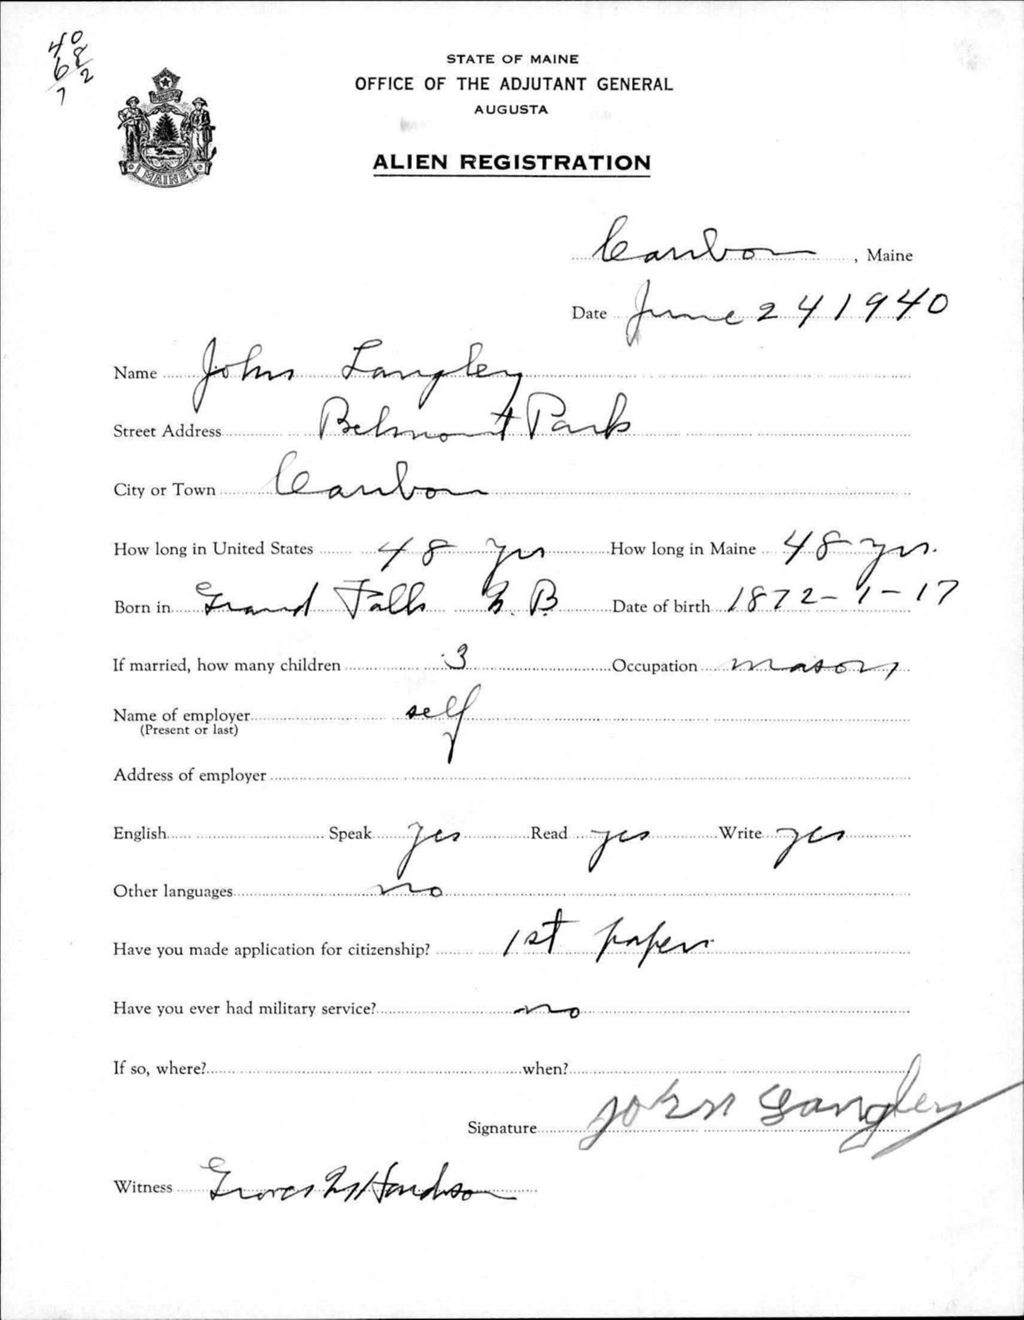 40
68
72
STATE OF MAINE
OFFICE OF THE ADJUTANT GENERAL
AUGUSTA
MAINE
ALIEN REGISTRATION
Caribou, Maine
Date June 24 1940
Name John Langley
Street Address Belmont Park
City or Town Caribou
How long in United States 48 yrs How long in Maine 48 yrs.
Born in Grand Falls N.B. Date of birth 1872-1-17
If married, how many children 3 Occupation mason
Name of employer self
(Present or last)
Address of employer
English Speak yes Read yes Write yes
Other languages no
Have you made application for citizenship? 1st papers
Have you ever had military service? no
If so, where? when?
Signature John Langley
Witness Hardison